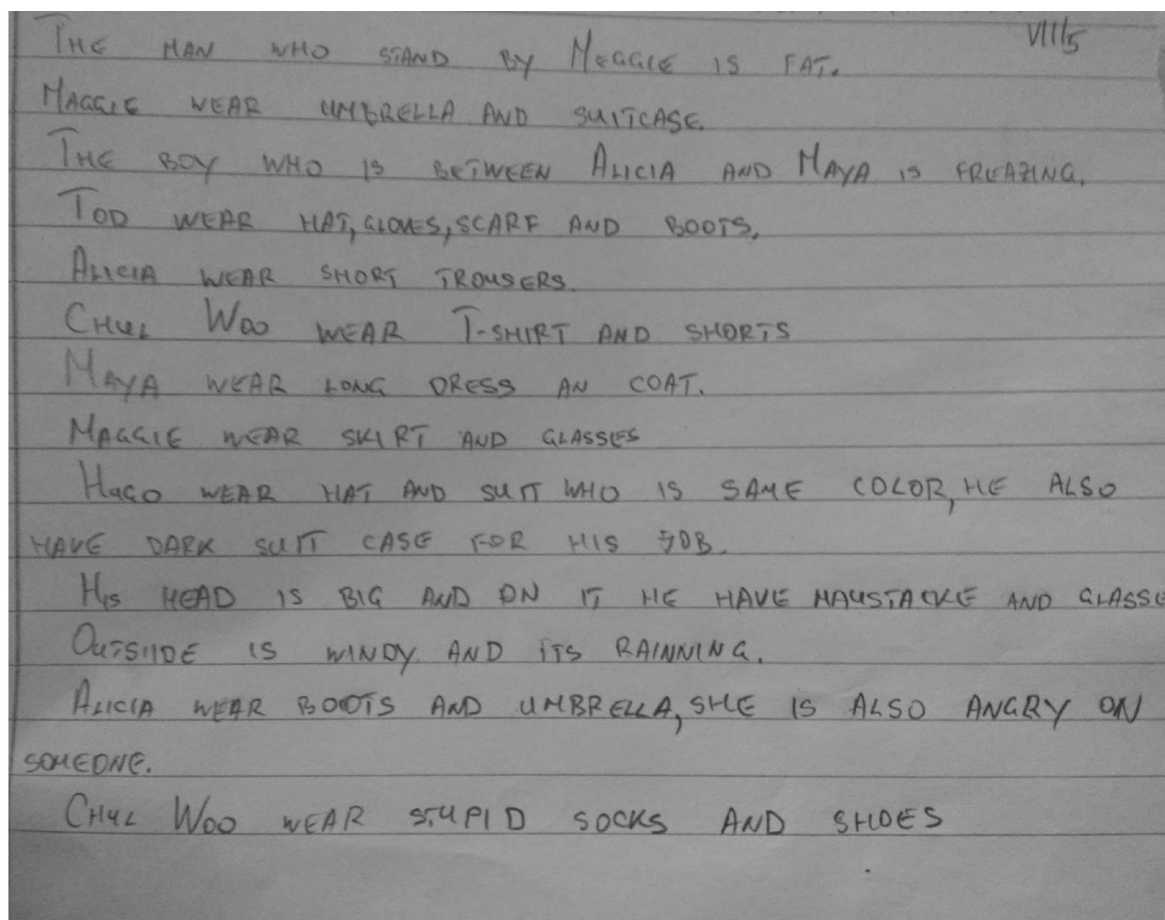 VIII/5
THE MAN WHO STAND BY MEGGIE IS FAT.
MAGGIE WEAR UMBRELLA AND SUITCASE.
THE BOY WHO IS BETWEEN ALICIA AND MAYA IS FREAZING.
TOD WEAR HAT, GLOVES, SCARF AND BOOTS.
ALICIA WEAR SHORT TROUSERS.
CHUL WOO WEAR T-SHIRT AND SHORTS
MAYA WEAR LONG DRESS AN COAT.
MAGGIE WEAR SKIRT AND GLASSES
HUGO WEAR HAT AND SUIT WHO IS SAME COLOR, HE ALSO
HAVE DARK SUIT CASE FOR HIS JOB.
HIS HEAD IS BIG AND ON IT HE HAVE MAUSTACKE AND GLASSE
OUTSIDE IS WINDY AND ITS RAINNING.
ALICIA WEAR BOOTS AND UMBRELLA, SHE IS ALSO ANGRY ON
SOMEONE.
CHUL WOO WEAR STUPID SOCKS AND SHOES